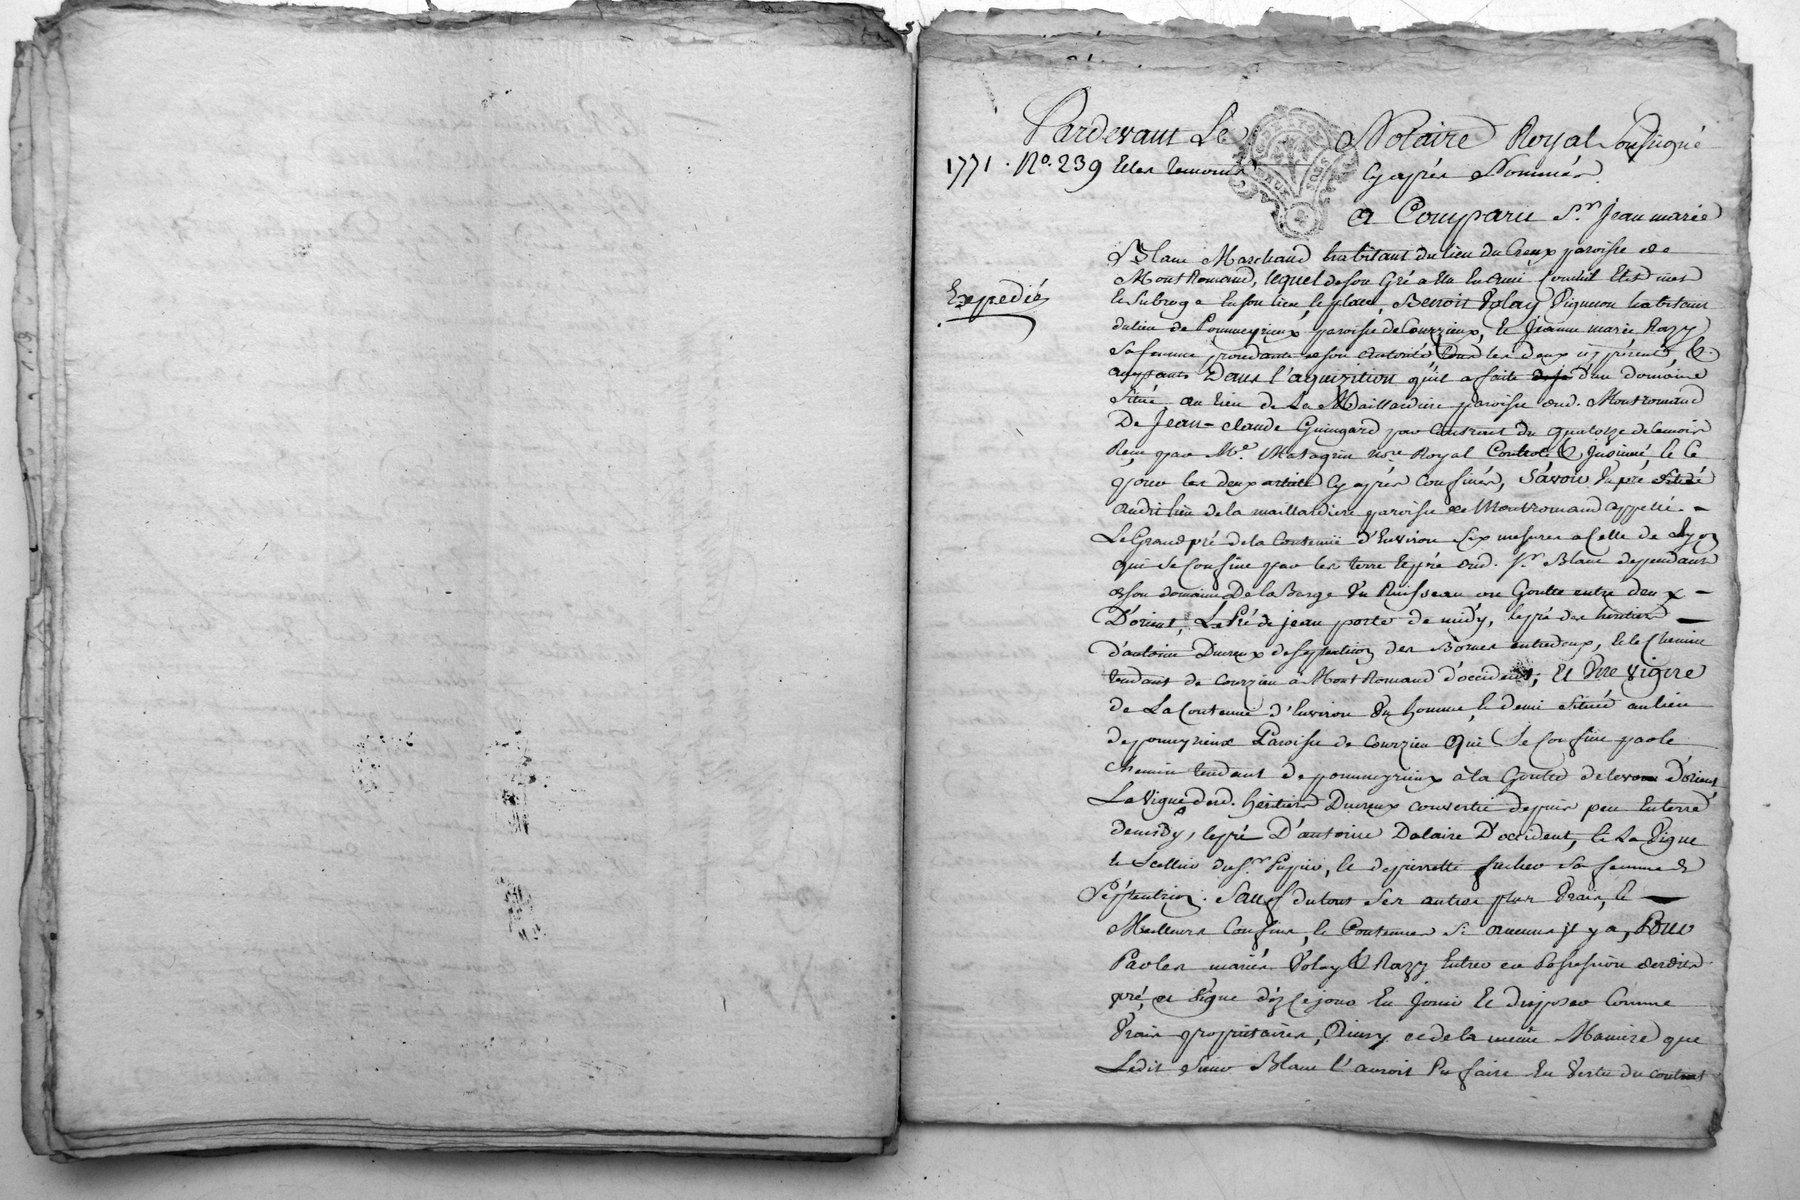 Pardevant Le Notaire Royal soussigné
1771. No. 239 Et les temoins Cyaprés Nommés.
a Comparu S.r Jean marie
Blanc Marchand habitant du lieu du Creux paroisse de
MontRomand, lequel de son Gré a mis
Expedié
et Subrogé En son lieu, & place, Benoit Volay Vigneron habitant
du lieu de Pommeyrieux paroisse de Courzieux, & Jeanne marie Razy
Sa femme procedante de son autorité tous les deux icy présents, &
acceptants Dans l'aquizition qu'il a faite d'un domaine
Situé au lieu de La Maillardiere paroisse dud. Montromand
De Jean-claude Guingard par Contrant du quatorze de ce mois
Recu par M.e Matagrin no.re Royal Controlé & Insinué le
pour les deux articles Cyaprés Confinés, Sávoir Un pré Situé
audit lieu de la maillardiere paroisse de Montromand appellé. -
Le Grand pré de la Contenüe d'Environ Six mesures a Celle de Lyon
qui Se Confine par les terre & pré dud. S.r Blanc dependants
de son domaine De la Barge Un Ruisseau ou Goutte entre deux -
D'órient, Le Pré de jean porte de midy, le pré des héritiers -
d'antoine Ducreux de Septentrion des Bornes entredeux, & le Chemin
tendant de Courzieu à MontRomand d'occident; Et Une Vigne
de La Contenue d'Environ Un homme & demi Située au lieu
de pomeyrieux Paroisse de Courzieu Qui Se Confine par le
Chemin tendant de pommeyrieux à la Goutte de D'orient
La Vigne desd. héritiers Ducreux convertie depuis peu En terre
de midy, le pré D'antoine Dalaire D'occident, & La Vigne
& Cellier du S.r Pupier, & de pierrette sa femme de
Séptentrion. Sauf du tout Ses autres plus Vrais, & -
Meilleurs Confins, & Contenues Si aucunes il y a, Pour
Par les mariés Volay & Razy Entrer en Possession desdits
pré, et Vigne dez Ce jour En Jouir Et disposer Comme
Vrais propriétaires, Ainsy et de la même Maniere que
Ledit Sieur Blanc l'auroit Pu faire En Vertu du contrat